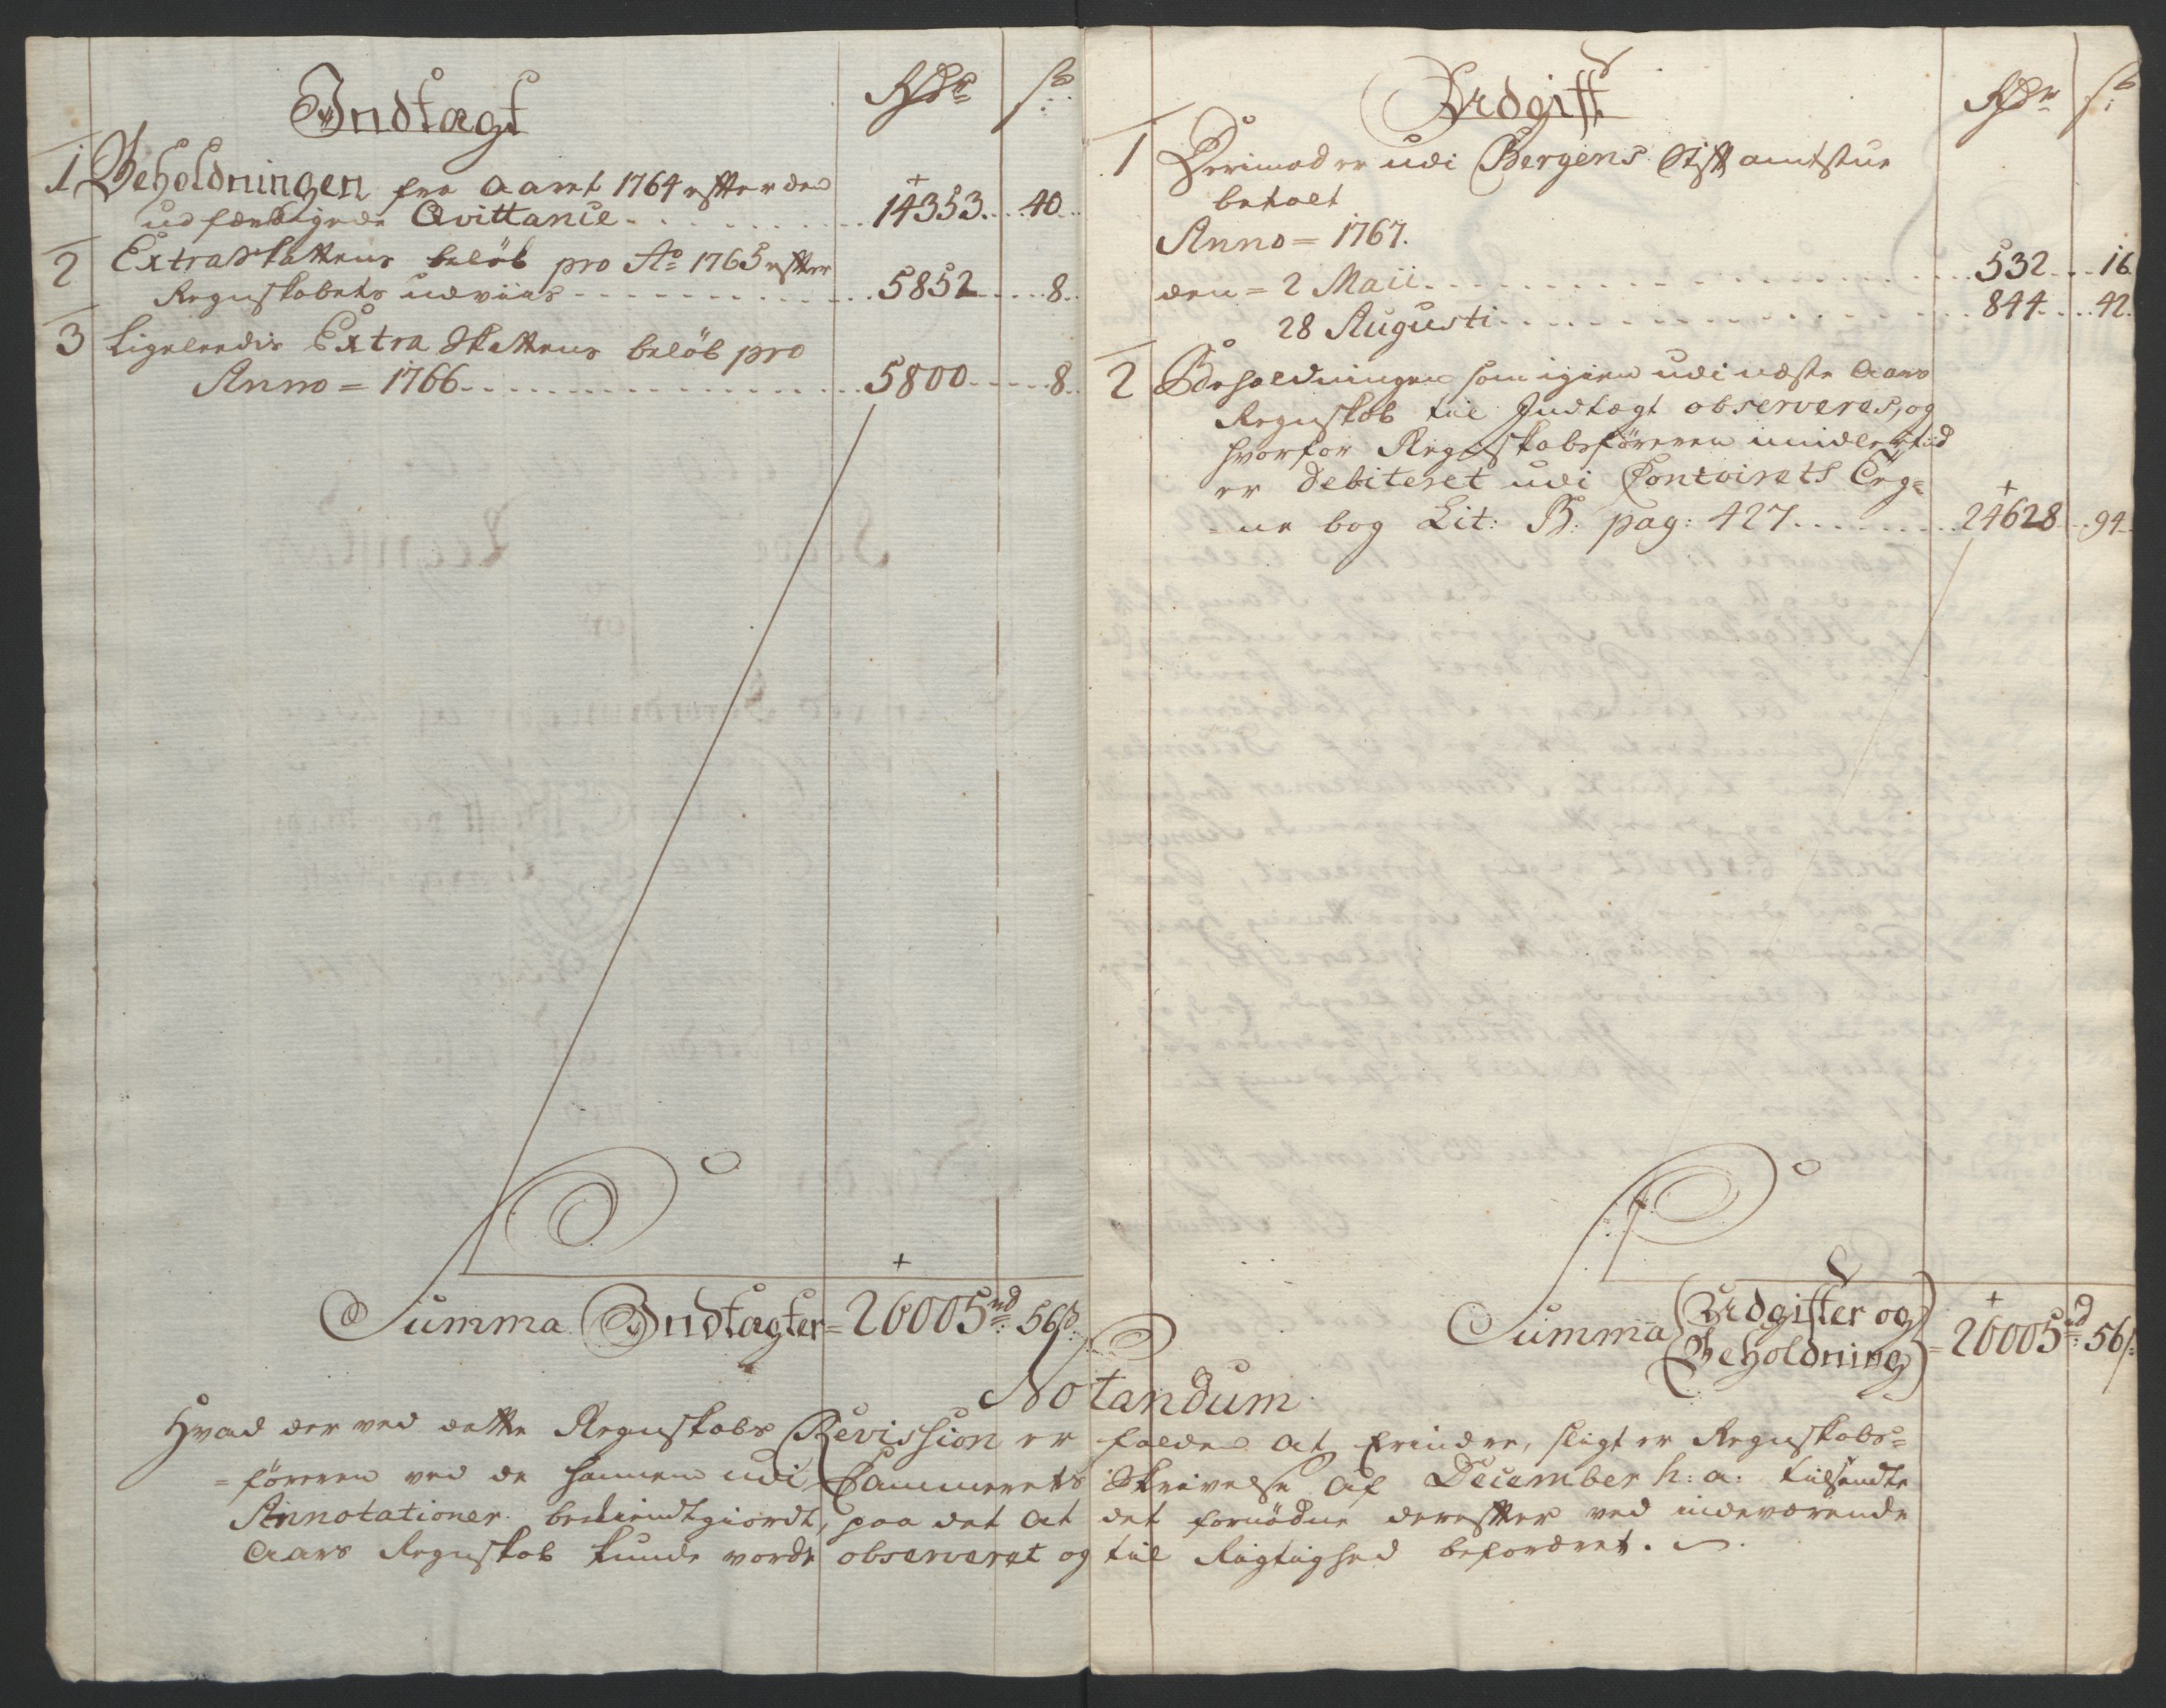 Indtægt
Rdr ß
1 Beholdningen fra Aaret 1764 efter den
udfærdigede Qvittance 14353. 40
2 Extra Skattens beløb pro Ao 1765 efter
Regnskabets udviis 5852 8
3 Ligeledis Extra Skattens beløb pro
Anno = 1766 5800 8
Summa Indtægter = 26005rd 56ß
Udgift
Rdr ß
1 Derimod er udi Bergens Stiftamtstue
betalt
Anno = 1767.
den = 2 Maii 532 16
28 Augusti 844 42
2 Beholdningen som igien udi næste Aars
Regnskab til Indtægt observeres, og
hvorfor Regnskabsføreren imidlertid
er debiteret udi Contoirets Eyg=
ne bog Lit: B: pag: 427 24628 94
Summa Udgifter og
Beholdning = 26005rd 56ß
Notandum
Hvad der ved dette Regnskabs Revission er falden at erindre, sligt er Regnskabs=
=føreren ved de hannem udi Cammerets Skrivelse af December h: a: tilsendte
Annotationer bekiendtgiordt, paa det at det fornødne derefter ved indeværende
Aars Regnskab kunde vorde observeret og til Rigtighed befordret.